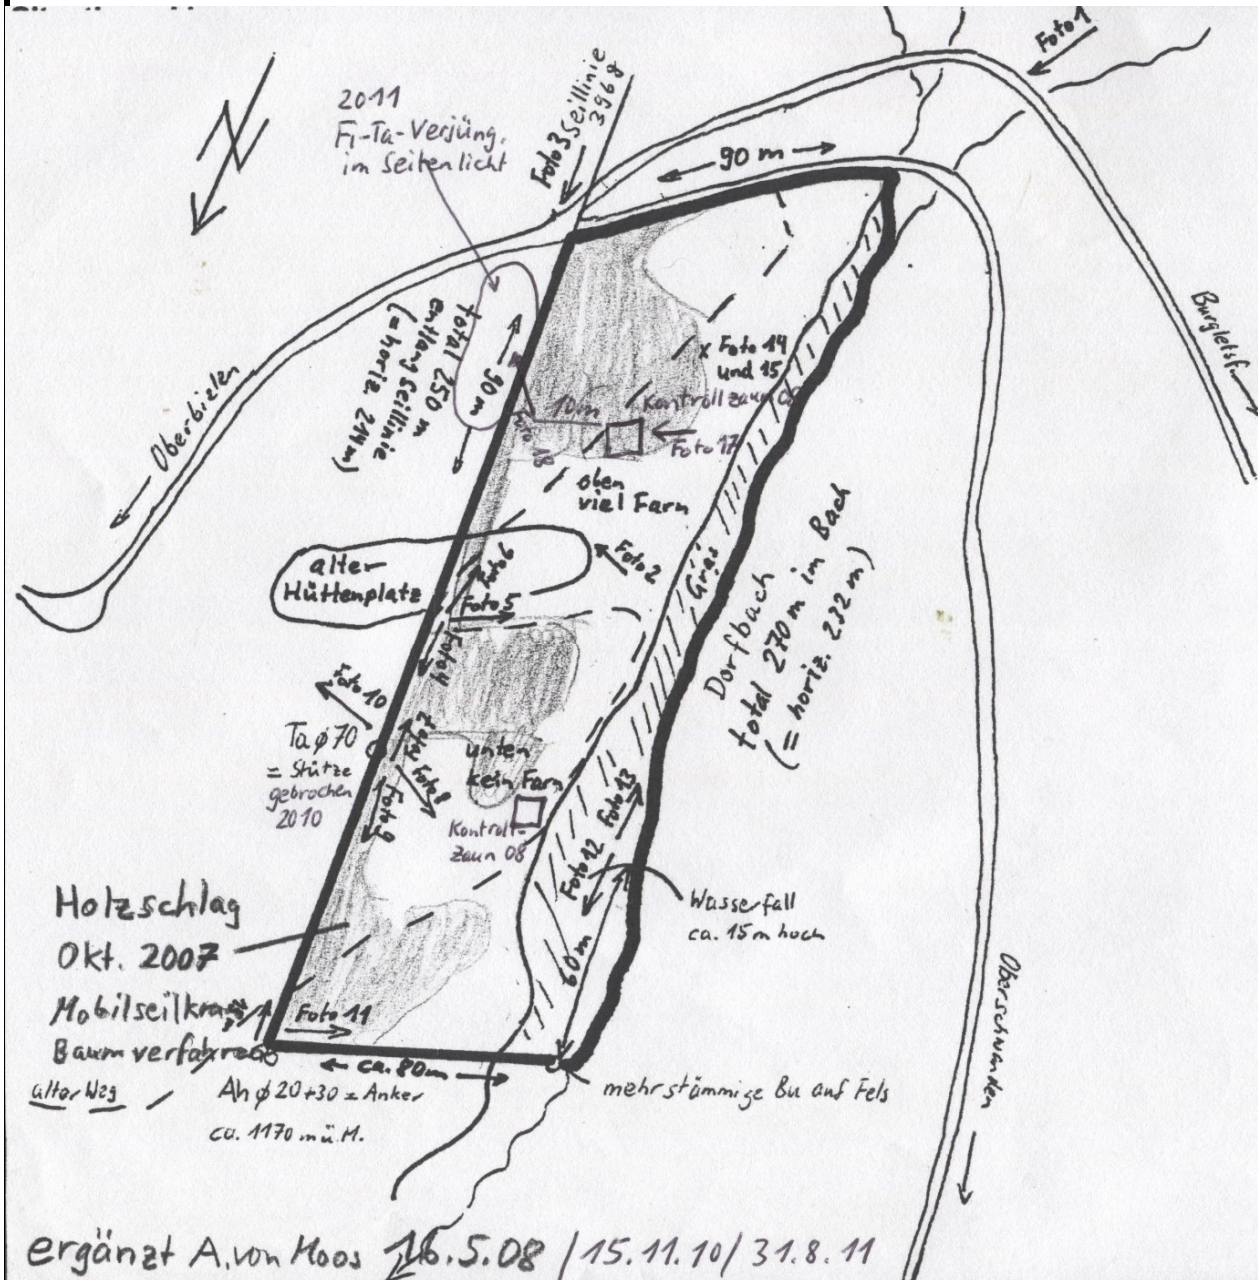 Foto 1
Foto 3 Seillinie
3968
2011
Fi-Ta-Verjüng.
im Seitenlicht
90 m
Burgletsf.
Oberbizlen
total 250 m
entlang Seillinie
(= horiz. 214 m)
90 m
x Foto 14
und 15
Kontrollzaun 08
10m
Foto 18
Foto 17
oben
viel Farn
alter
Hüttenplatz
Foto 6
Foto 5
Foto 2
Foto 4
Gras
Dorfbach
total 270 m im Bach
(= horiz. 232 m)
Foto 10
Ta ø 70
= Stütze
gebrochen
2010
Foto 7
Foto 8
Foto 9
unten
kein Farn
Kontroll-
zaun 08
Foto 13
Foto 12
60m
Wasserfall
ca. 15 m hoch
Holzschlag
Okt. 2007
Mobilseilkran
Baumverfahren
Foto 11
alter Weg
ca. 80m
Ah ø 20+30 = Anker
ca. 1170 m ü. M.
mehrstämmige Bu auf Fels
Oberschwanden
ergänzt A. von Moos 16.5.08 / 15.11.10 / 31.8.11